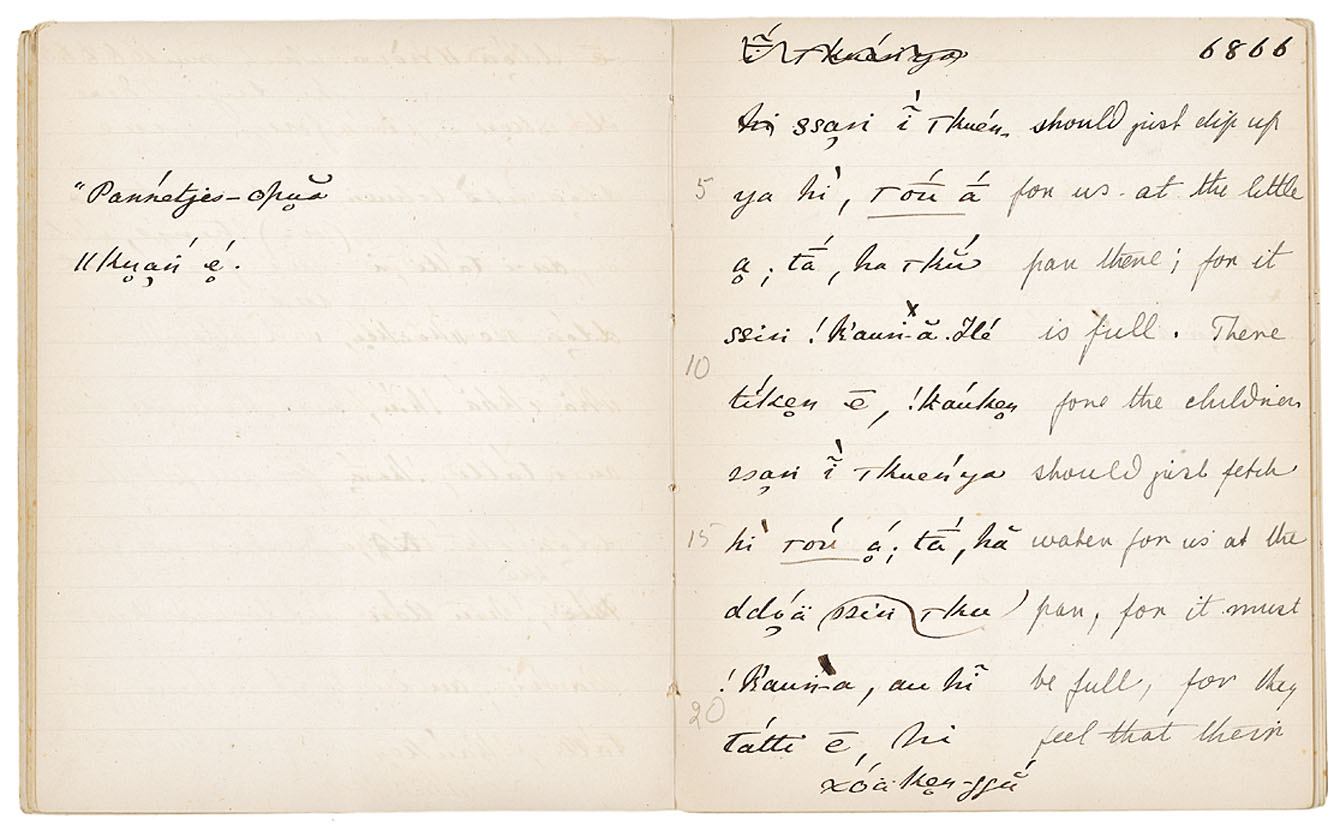 "Pannetjes-ŏhu̥ă
ǁku̥a̧ń é̥.
6866
ssa̧ri ĩ́ ꞇkuén- should just dip up
5 ya hi, ꞇōú ā́ for us at the little
ḁ; tā́, ha ꞇkŭ́ pan there; for it
ssiri !k'auñ-ă. Ilé is full. There
10
tíke̥n ē, !kaúke̥n fore the children
ssa̧ri ĩ́ ꞇkuénya should just fetch
15 hi ꞇoú ḁ́; tā́, hă water for us at the
ddó̧ä ssin ꞇku pan, for it must
!k'auña, au hĩ be full, for they
20
tátti ē, hi feel that their
xóä ke̥n-ggŭ́